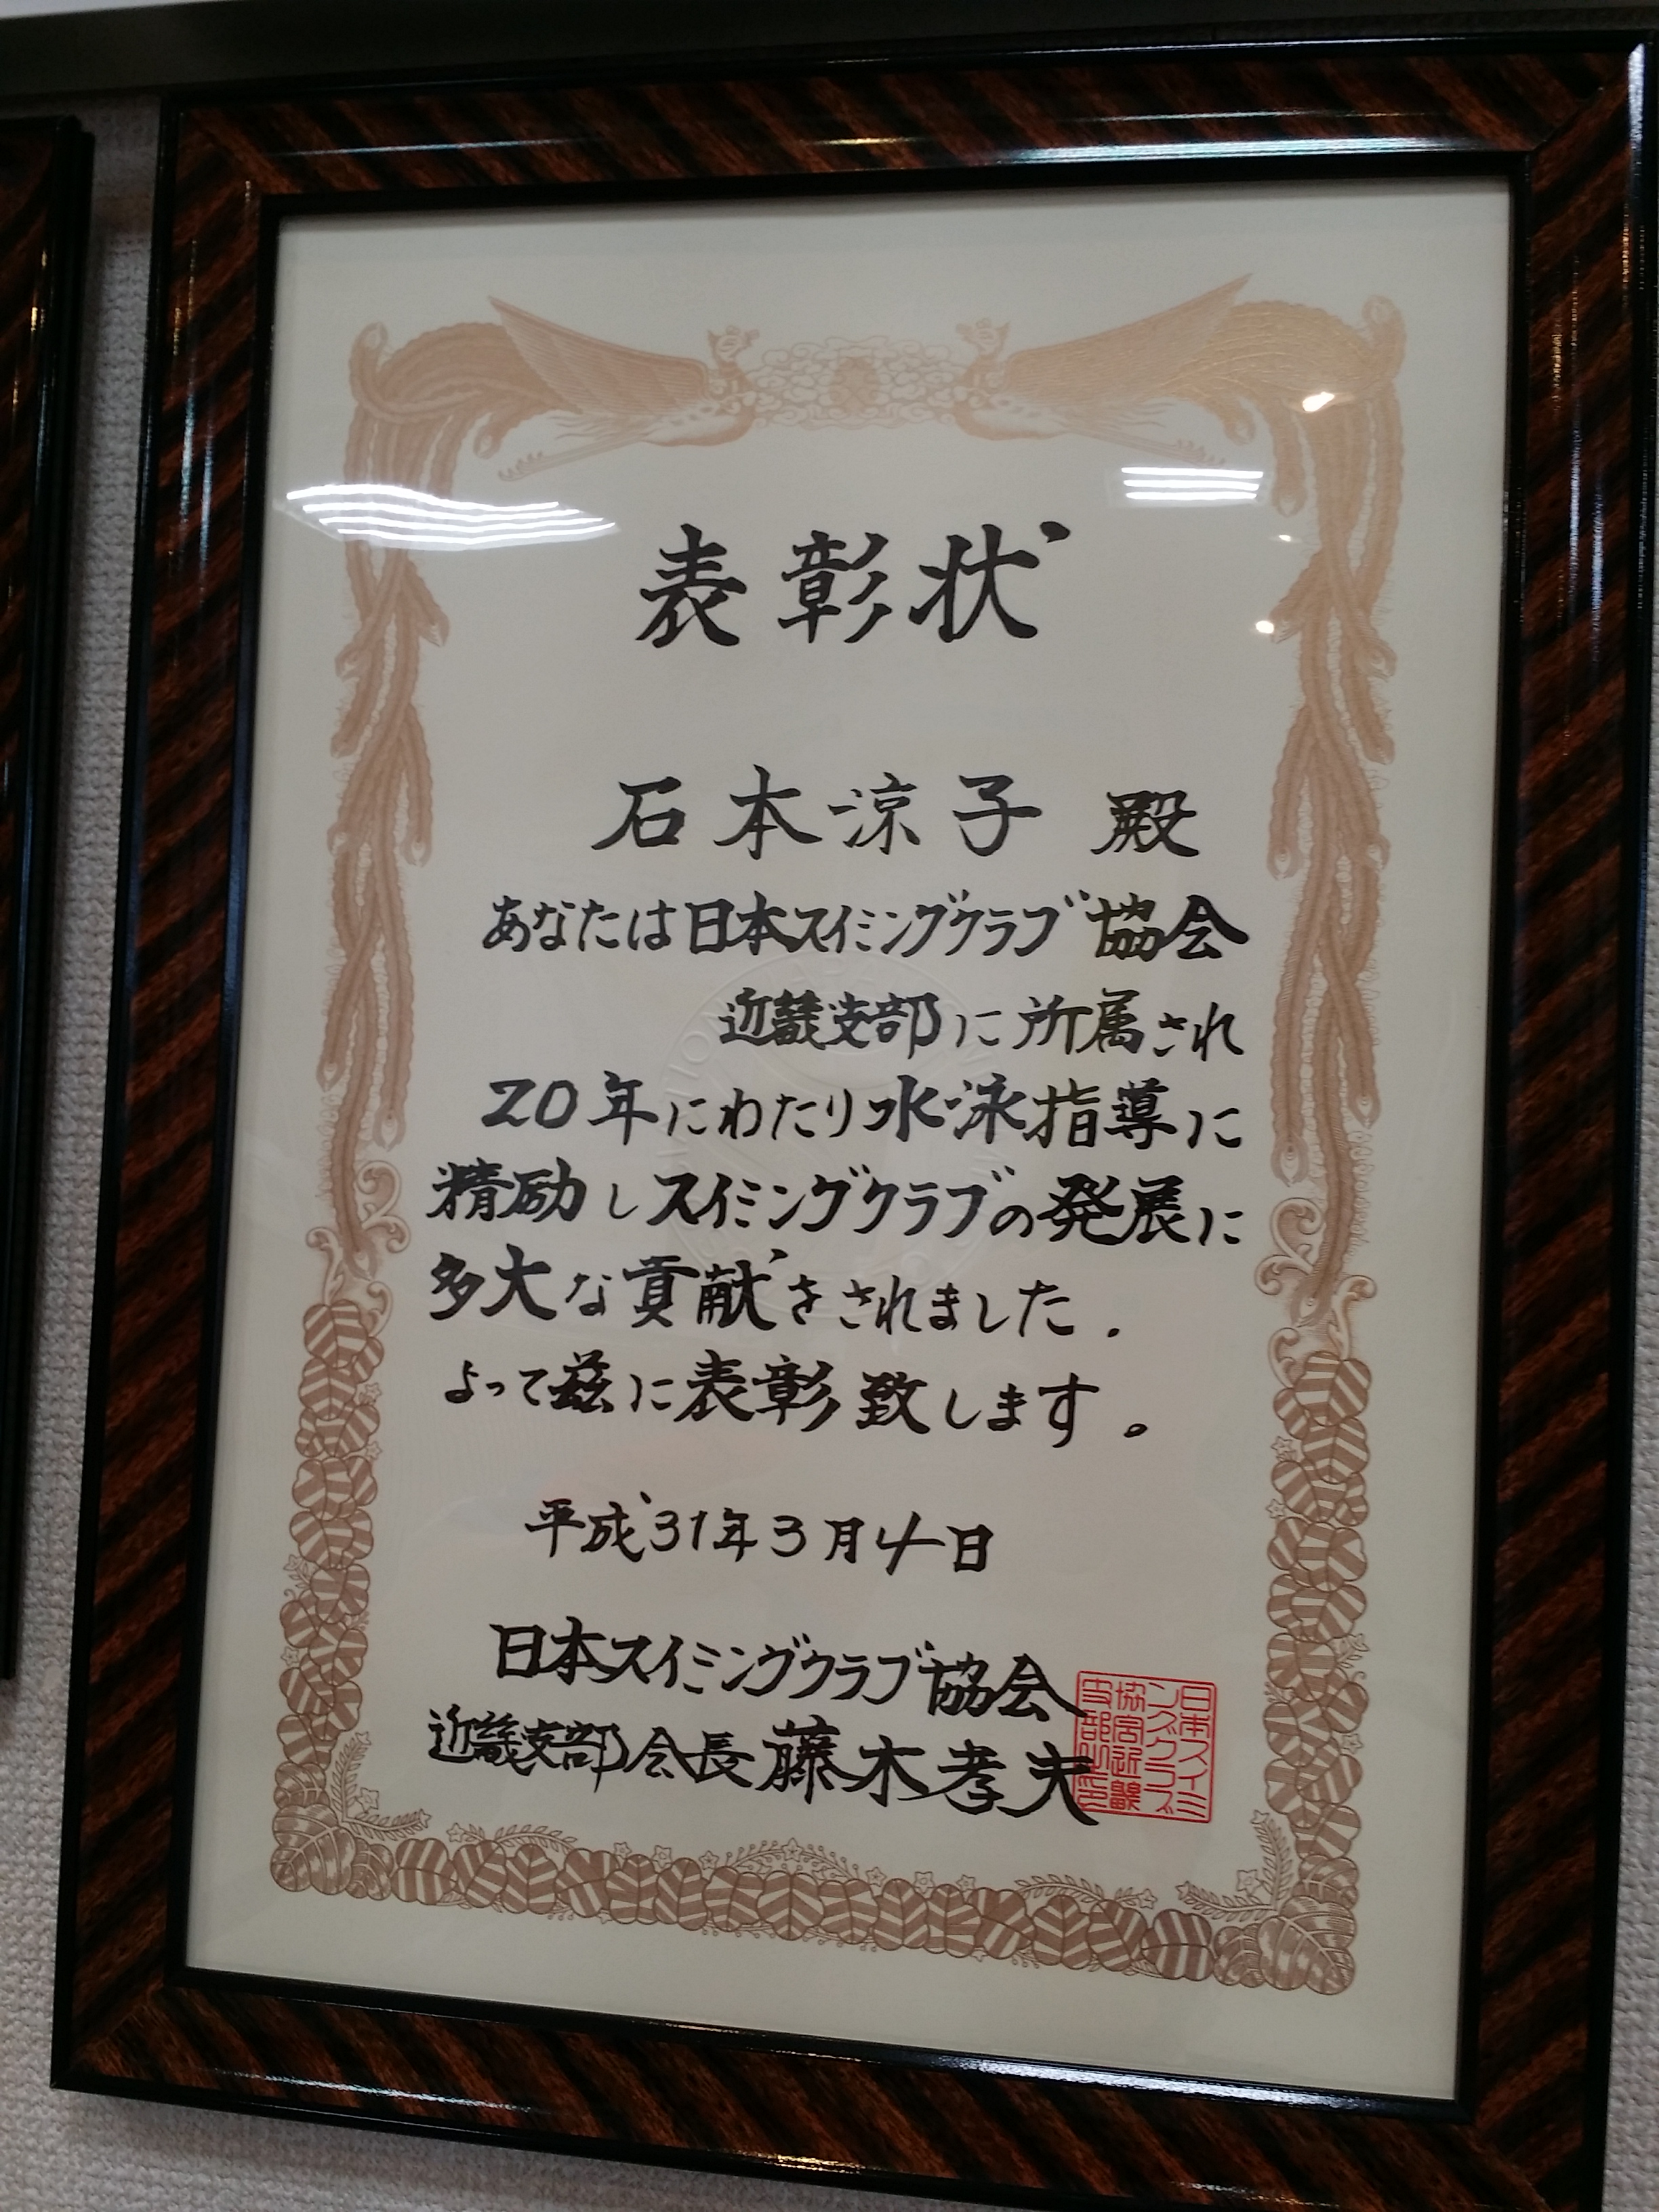 表彰状
石本涼子 殿
あなたは日本スイミングクラブ協会
近畿支部に所属され
20年にわたり水泳指導に
精励しスイミングクラブの発展に
多大な貢献をされました.
よって茲に表彰致します。
平成31年3月4日
日本スイミングクラブ協会
近畿支部会長藤木孝夫